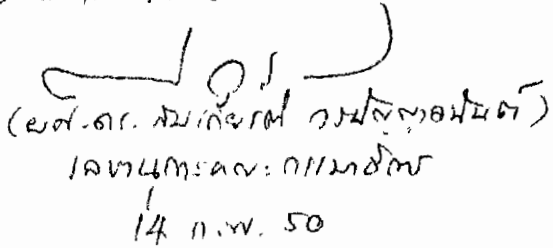 (ผศ.ดร. สมเกียรติ วรปัญญาอนันต์)
เลขานุการคณะกรรมาธิการ
14 ก.พ. 50